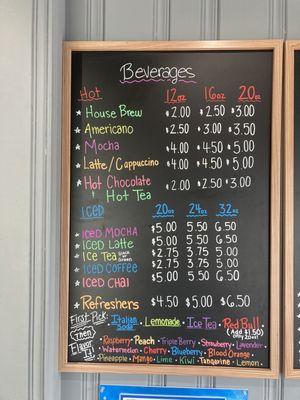 Beverages
Hot 12oz 16oz 20oz
* House Brew $2.00 $2.50 $3.00
* Americano $2.50 $3.00 $3.50
* Mocha $4.00 $4.50 $5.00
* Latte/Cappuccino $4.00 $4.50 $5.00
* Hot Chocolate $2.00 $2.50 $3.00
+ Hot Tea
Iced 20oz 24oz 32oz
* Iced Mocha $5.00 5.50 6.50
* Iced Latte $5.00 5.50 6.50
* Ice Tea Black or Green $2.75 3.75 5.00
* Iced Coffee $2.75 3.75 5.00
* Iced Chai $5.00 5.50 6.50
* Refreshers $4.50 $5.00 $6.50
First Pick: Italian Soda Lemonade Ice Tea Red Bull
(Add $1.50)
(Then) Raspberry Peach Triple Berry Strawberry Lavender
Flavor It! Watermelon Cherry Blueberry Blood Orange
Pineapple Mango Lime Kiwi Tangerine Lemon